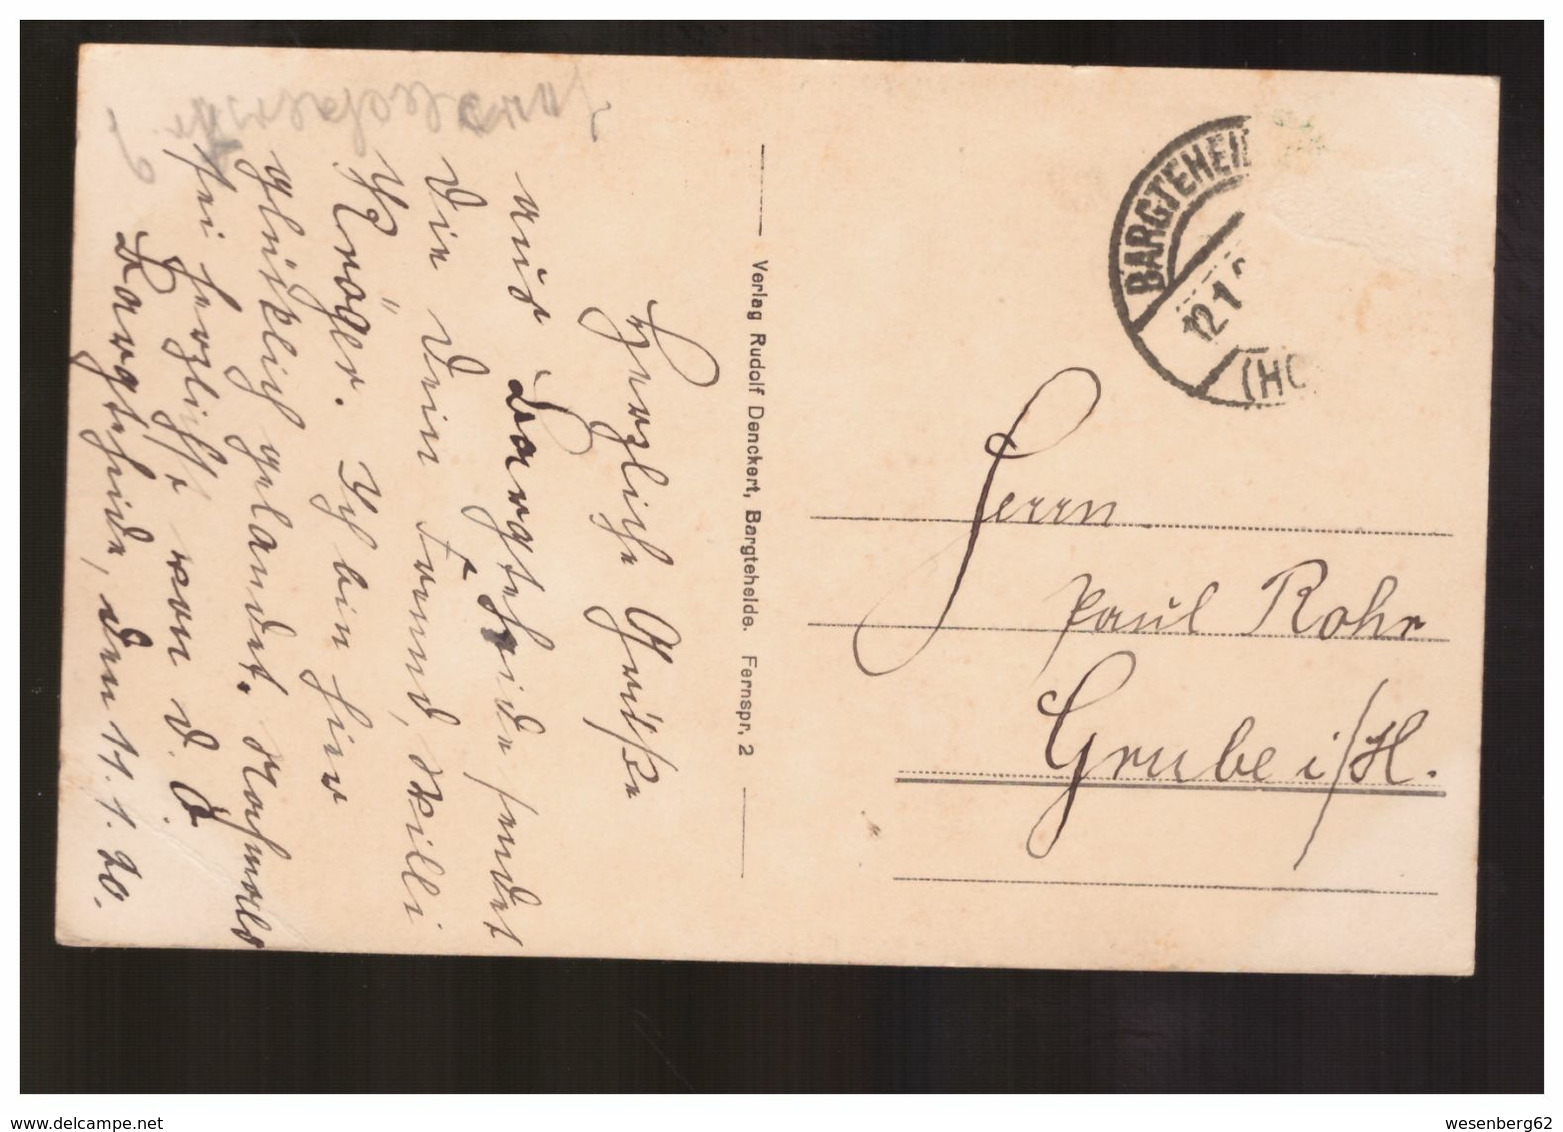 Herzliche Grüße
aus Bargteheide sendet
Dir Dein Freund, Willi
H. Kröger. Ich bin hier
glücklich gelandet. Nochmals
sei herzlichst von d. O.
Bargteheide, den 11.1.20.
Verlag Rudolf Denckert, Bargteheide. Fernspr. 2
BARGTEHEID
12.1
(HO
Herrn
Paul Rohr
Grube i/H.
wesenberg62